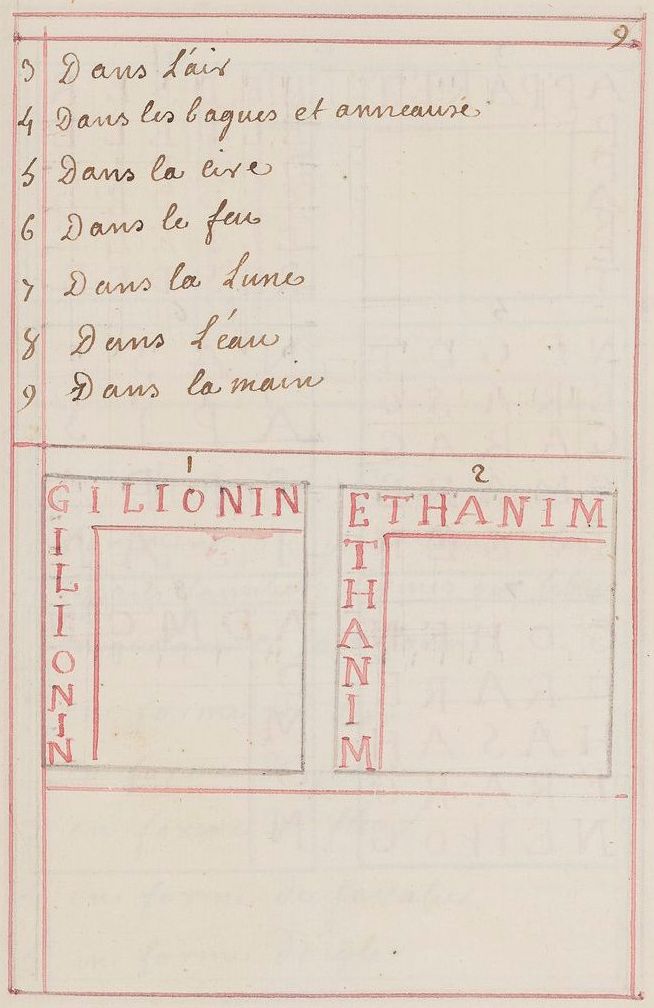 9
3 Dans L'air
4 Dans les bagues et anneausé
5 Dans la cire
6 Dans le feu
7 Dans la Lune
8 Dans L'éau
9 Dans la main
1
GILIONIN
I
L
I
O
N
I
N
2
ETHANIM
T
H
A
N
I
M